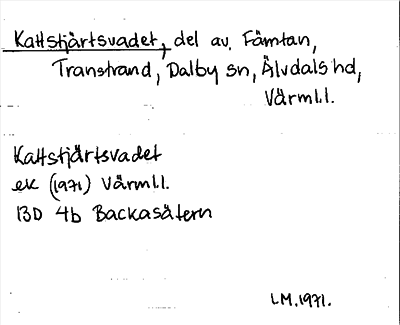 Kattstjärtsvadet, del av Fämtan,
Transtrand, Dalby sn, Älvdals hd,
Värml.
Kattstjärtsvadet
ek (1971) Värml.
13D 4b Backasätern
LM.1971.